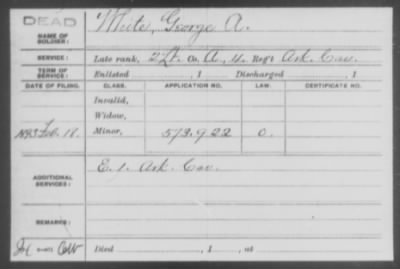 DEAD
NAME OF SOLDIER: White, George A.
SERVICE: Late rank, 2 Lt. Co. A, 4. Reg't Ark. Cav.
TERM OF SERVICE: Enlisted , 1 Discharged , 1
DATE OF FILING. CLASS. APPLICATION NO. LAW. CERTIFICATE NO.
Invalid,
Widow,
1893 Feb. 18. Minor, 573.922 O.
ADDITIONAL SERVICES: E. 1. Ark. Cav.
REMARKS:
Died , 1 , at